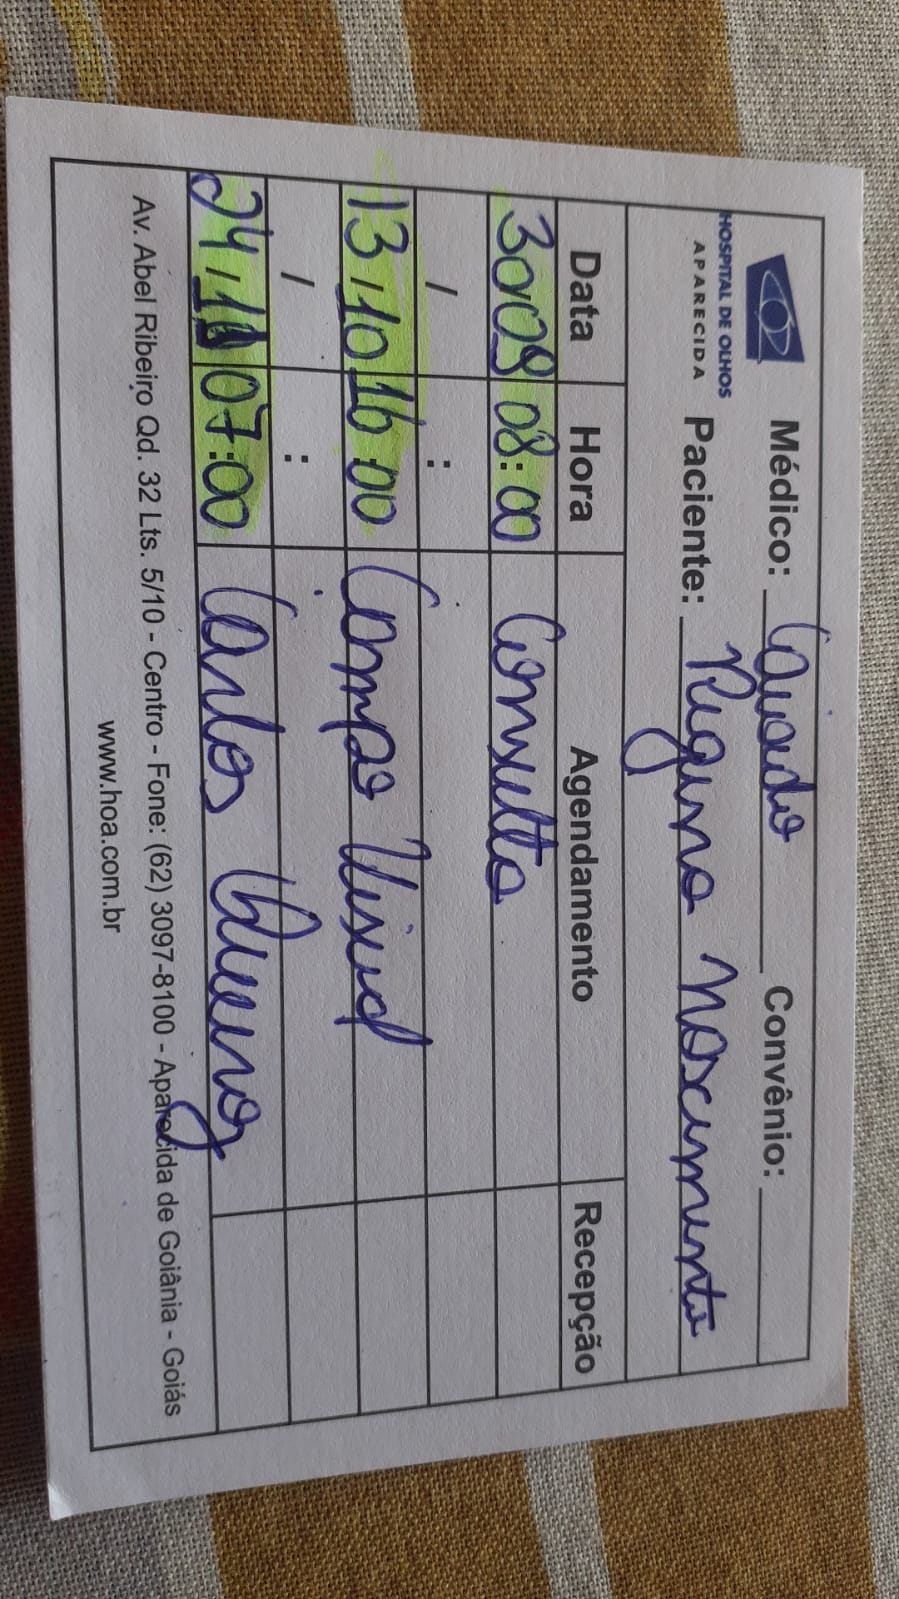 HOSPITAL DE OLHOS
APARECIDA
Médico: Caiado Convênio:
Paciente: Regino Nascimento
Data Hora Agendamento Recepção
30/08 08:00 Consulta
/ :
13/10 16:00 Campo Visual
/ :
24/11 07:00 Carlos
Av. Abel Ribeiro Qd. 32 Lts. 5/10 - Centro - Fone: (62) 3097-8100 - Aparecida de Goiânia - Goiás
www.hoa.com.br